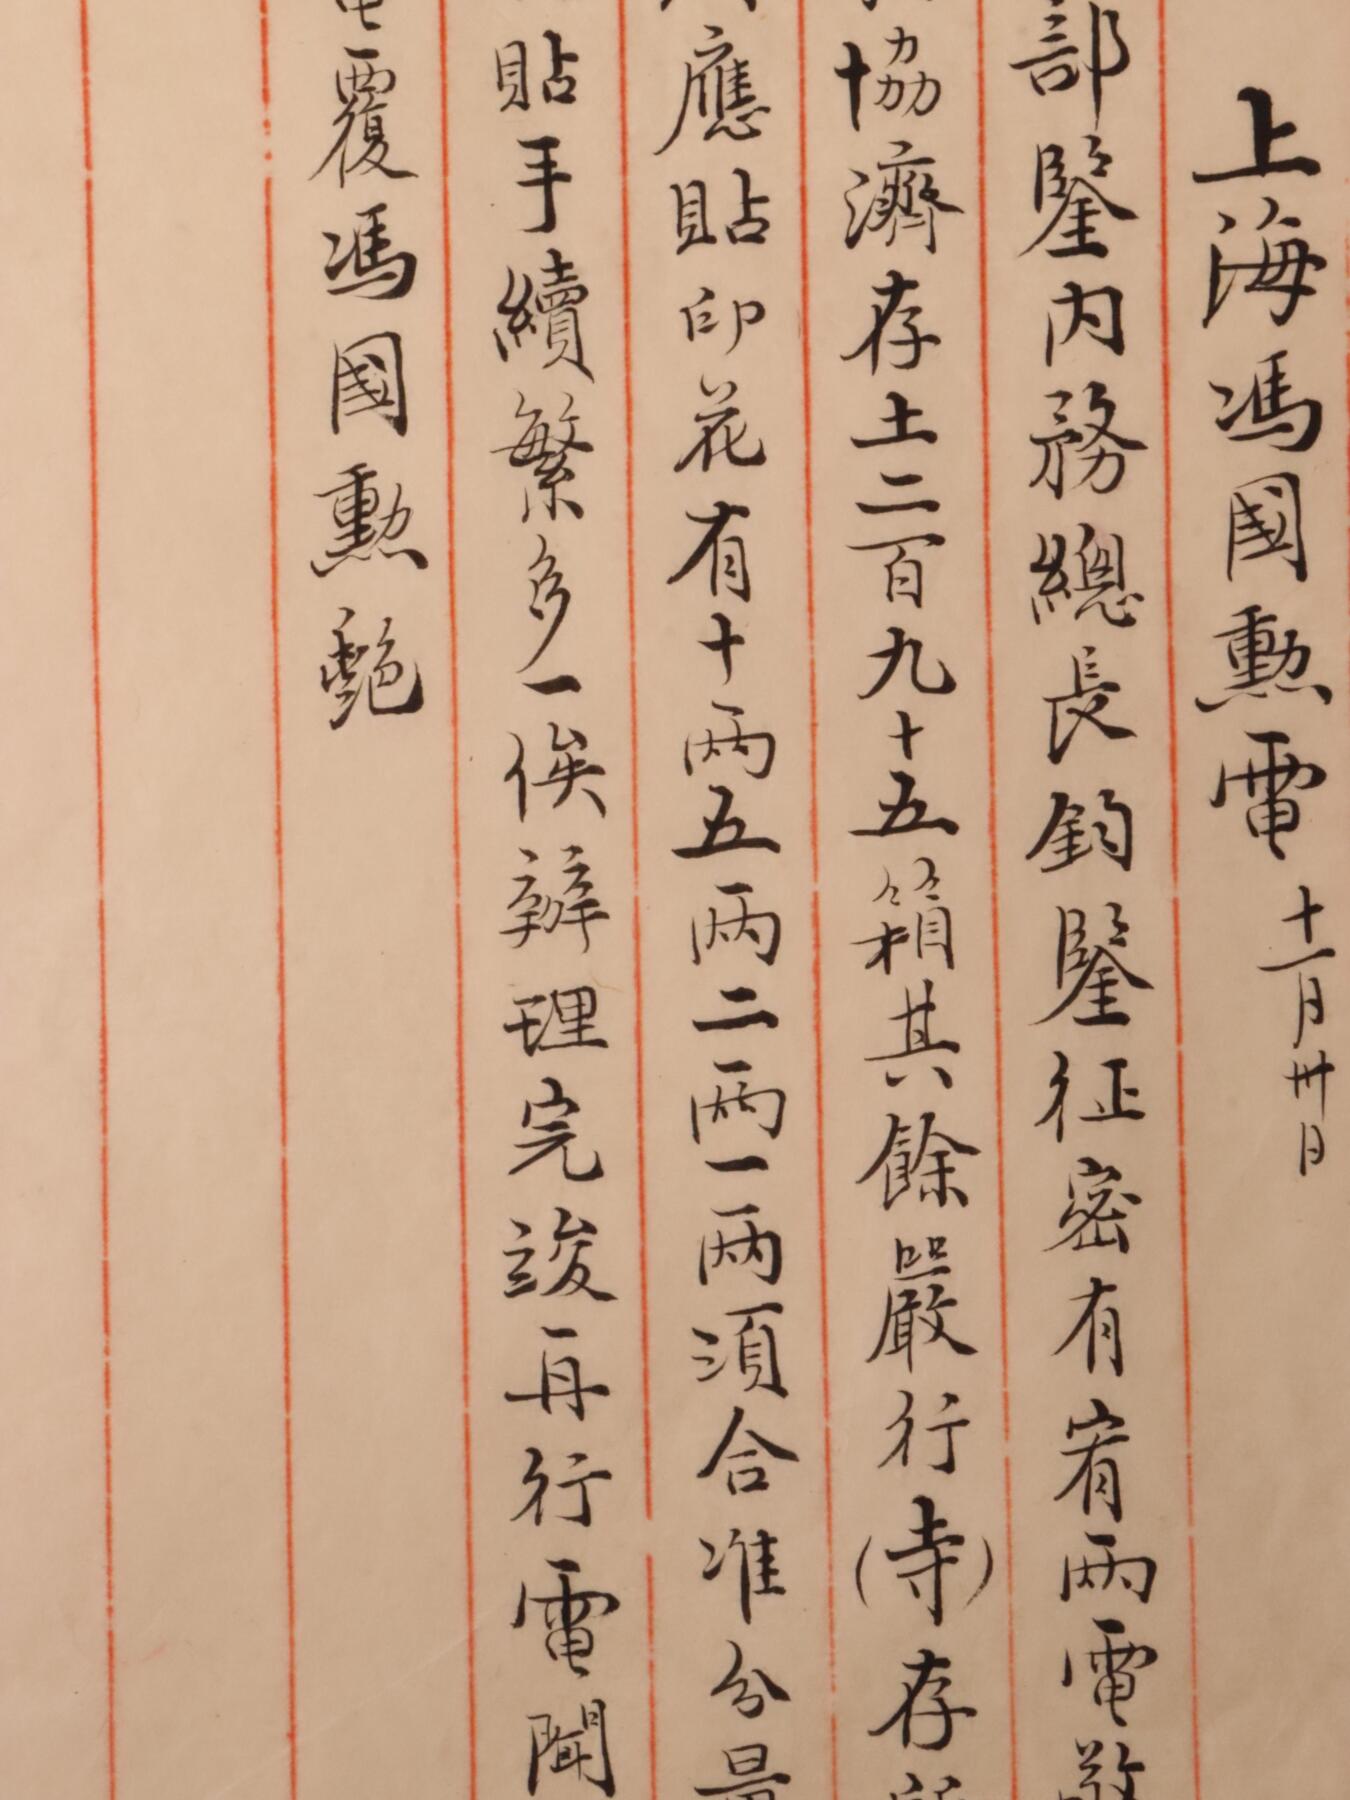 上海馮國勳電 十一月卅日
部鑒內務總長鈞鑒征密有宥兩電敬
協濟存土二百九十五箱其餘嚴行(寺)存
應貼印花有十兩五兩二兩一兩須合准分量
貼手續繁多一俟辦理完竣再行電聞
電覆馮國勳艷